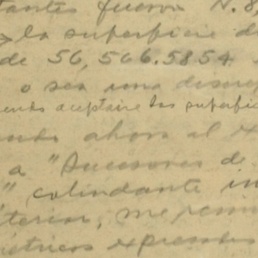 tantes fueron N. 8
la superficie d
de 56,566.5854
o sea una discre
endo aceptaire las superfic
endo ahora al ex
a "Sucesores de
" colindante in
terior, me permi
metricos expresados